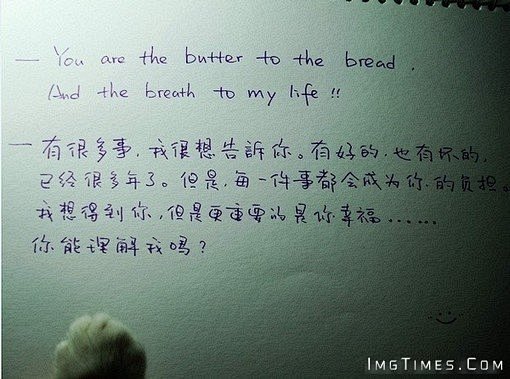 — You are the butter to the bread.
And the breath to my life!!
— 有很多事，我很想告訴你。有好的，也有坏的，
已经很多年了。但是，每一件事都会成为你的负担。
我想得到你，但是更重要的是你幸福……
你能理解我吗？
IMGTIMES.COM